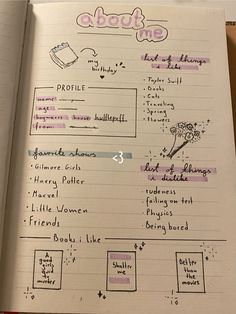 about
me
my
birthday
list of things
i like
• Taylor Swift
• Books
• Cats
• Traveling
• Spring
• Flowers
PROFILE
name:
age:
hogwarts house: hufflepuff
from:
favorite shows
<3
• Gilmore Girls
• Harry Potter
• Marvel
• Little Women
• Friends
list of things
i dislike
• rudeness
• failing on test
• Physics
• Being bored
Books i like
A
good
girl's
guide
to
murder
Shatter
me
Better
than
the
movies